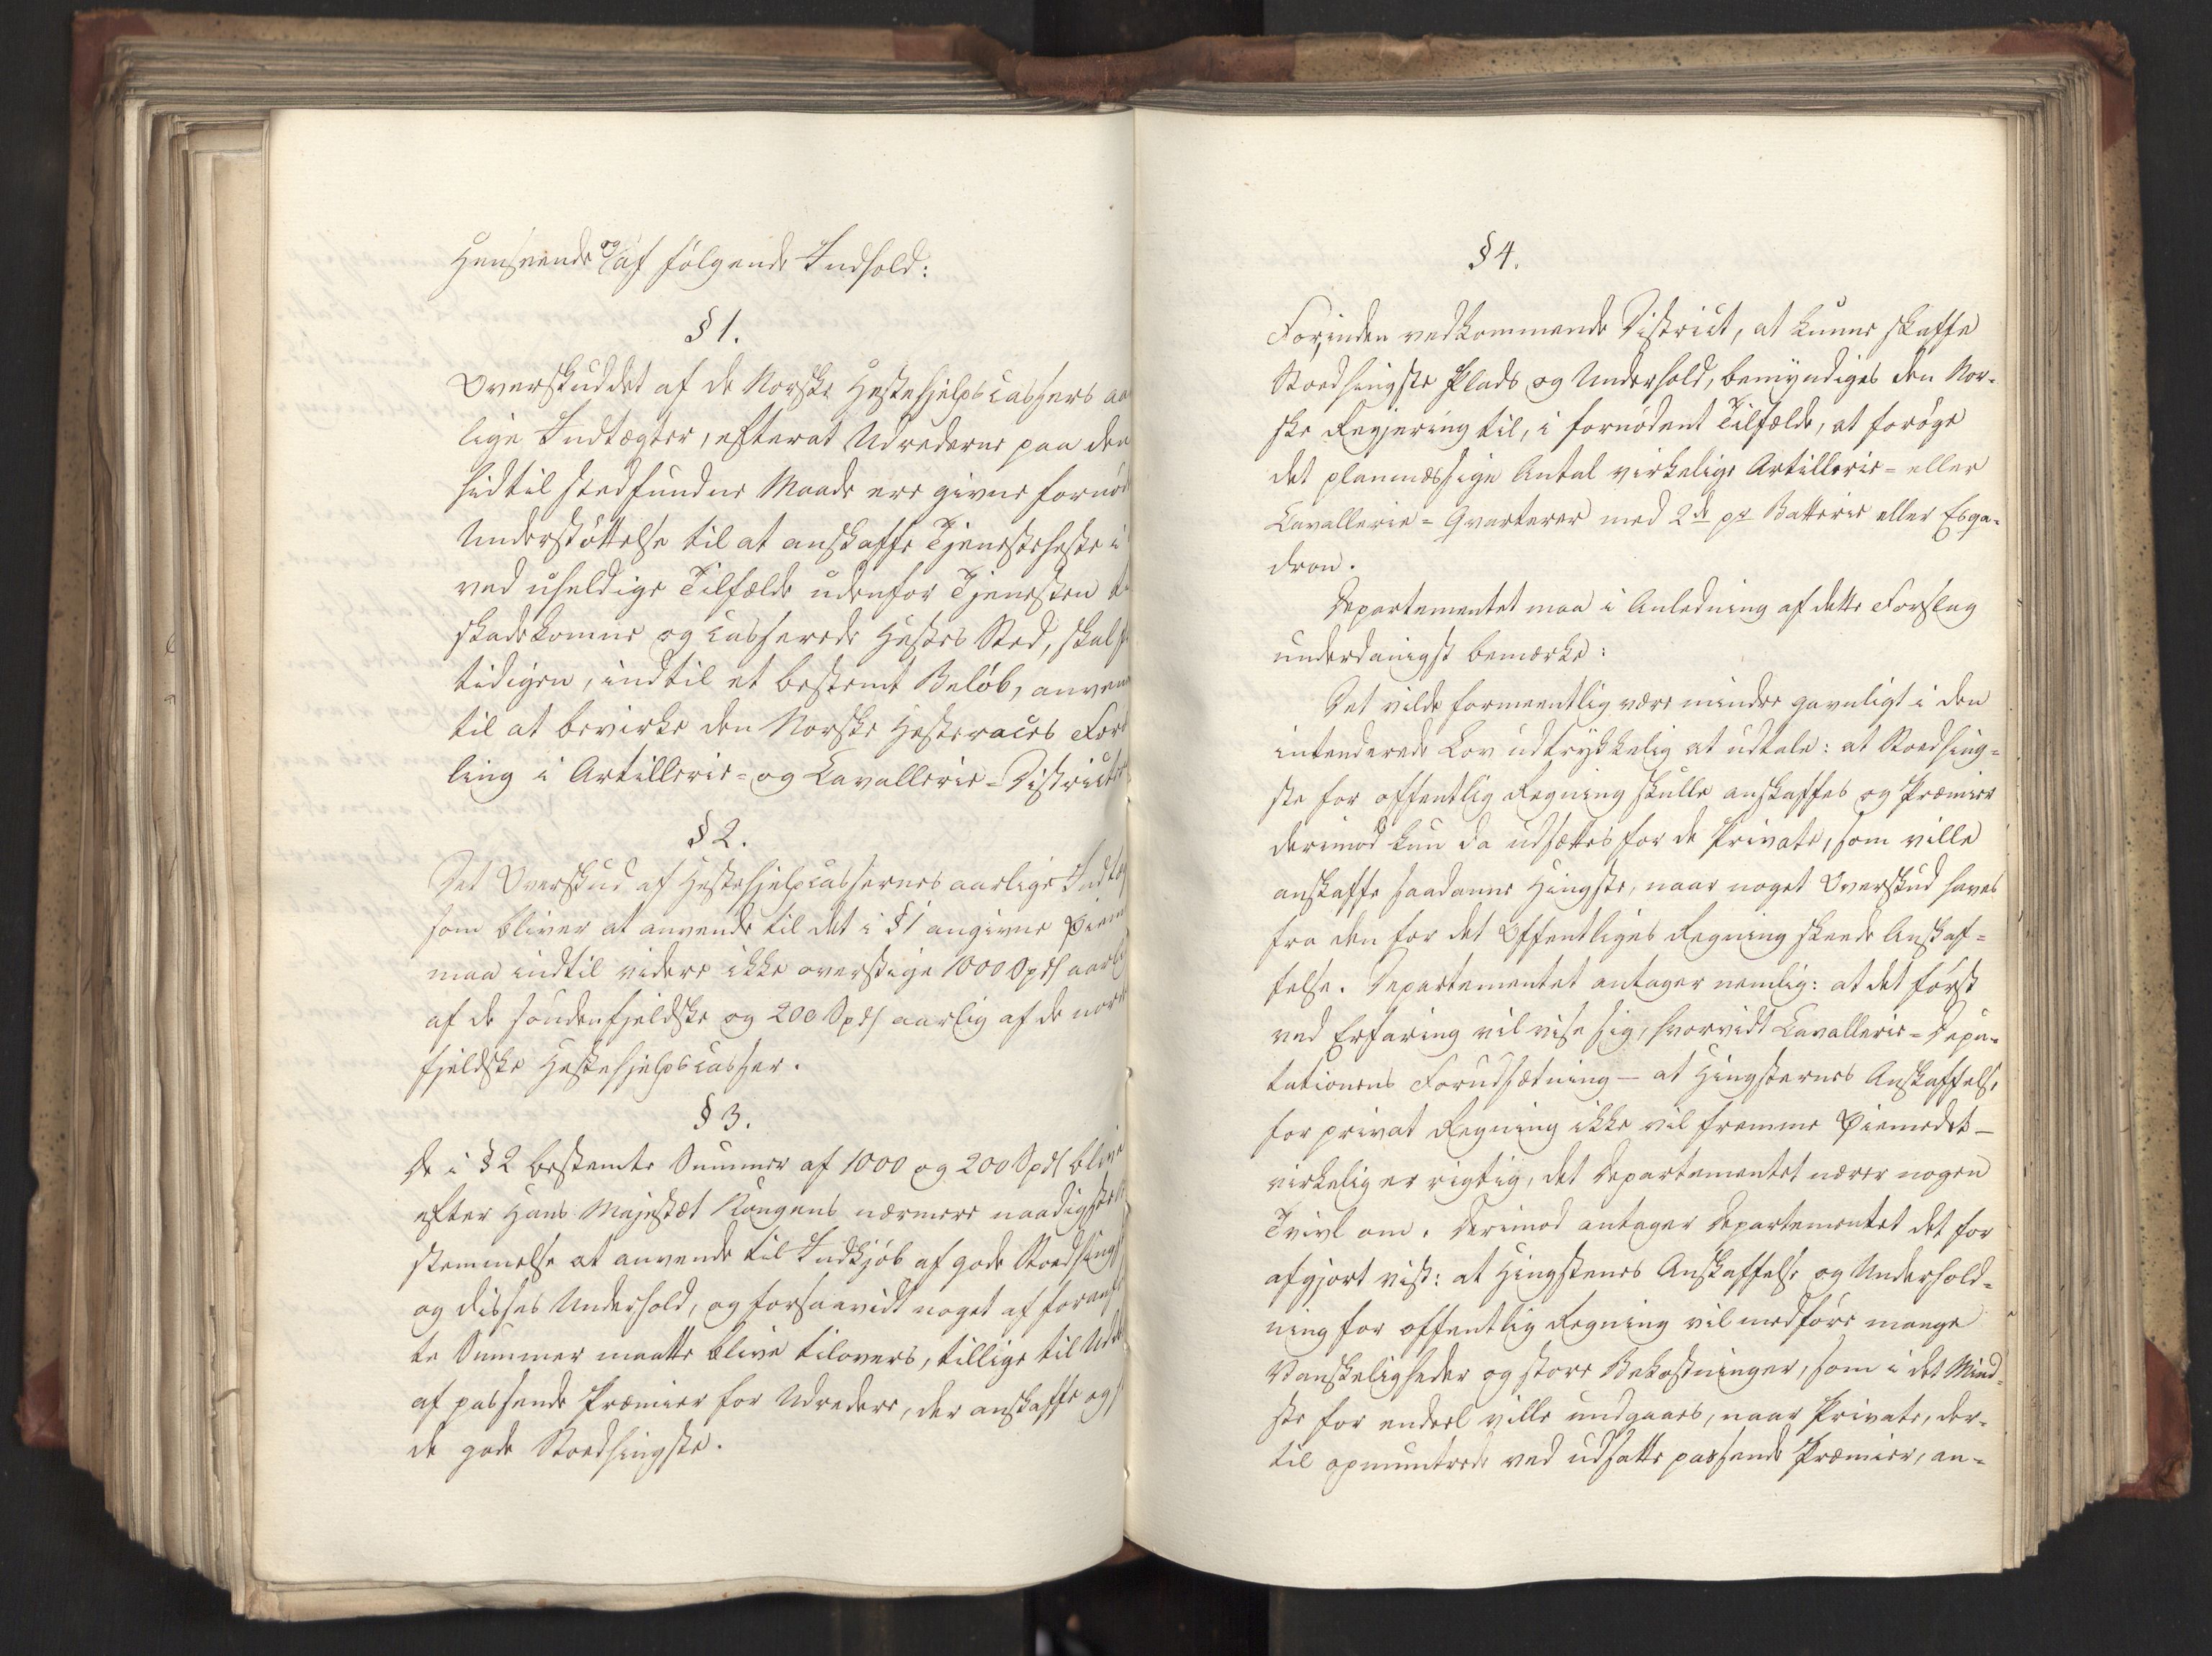 Henseende og af følgende Indhold:
§ 1.
Overskuddet af de Norske Hestehjelpscassers aa
lige Indtægter, efterat Udrederne paa den
hidtil stedfundne Maade ere givne fornød
Understøttelse til at anskaffe Tjenesteheste i
ved uheldige Tilfælde udenfor Tjenesten
skadekomne og casserede Hestes Sted, skal
tidigen, indtil et bestemt Beløb, anven
til at bevirke den Norske Hesteraces Foræd
ling i Artillerie- og Cavallerie-Districte
§ 2.
Det Overskud af Hestehjelpcassernes aarlige Indtæg
som bliver at anvende til det i § 1 angivne Øiem
maa indtil videre ikke overstige 1000 Spd aarli
af de søndenfjeldske og 200 Spd aarlig af de nord
fjeldske Hestehjelpscasser.
§ 3.
De i § 2 bestemte Summer af 1000 og 200 Spd blive
efter Hans Majestæt Kongens nærmere naadigste
stemmelse at anvende til Indkjøb af gode Stodhingst
og disses Underhold, og forsaavidt noget af foranf
te Summer maatte blive tilovers, tillige til Udde
af passende Præmier for Udredere, der anskaffe og
de gode Stodhingste.
§ 4.
For, inden vedkommende District, at kunne skaffe
Stodhingste Plads og Underhold, bemyndiges den Nor-
ske Regjering til, i fornødent Tilfælde, at forøge
det planmæssige Antal virkelige Artillerie- eller
Cavallerie-Qvarterer med 2de pr Batterie eller Esqa-
dron.
Departementet maa i Anledning af dette Forslag
underdanigst bemærke:
Det vilde formeentlig være mindre gavnligt i den
intenderede Lov udtrykkelig at udtale: at Stodhing-
ste for offentlig Regning skulle anskaffes og Præmier
derimod kun da udsættes for de Private, som ville
anskaffe saadanne Hingste, naar noget Overskud haves
fra den for det Offentliges Regning skeede Anskaf-
felse. Departementet antager nemlig: at det først
ved Erfaring vil vise sig, hvorvidt Cavallerie-Depu-
tationens Forudsætning — at Hingsternes Anskaffelse
for privat Regning ikke vil fremme Øiemedet —
virkelig er rigtig, det Departementet nærer nogen
Tvivl om. Derimod antager Departementet det for
afgjort vist: at Hingstenes Anskaffelse og Underhold-
ning for offentlig Regning vil medføre mange
Vanskeligheder og store Bekostninger, som i det Mind-
ste for endeel ville undgaaes, naar Private, der-
til opmuntrede ved udsatte passende Præmier, an-